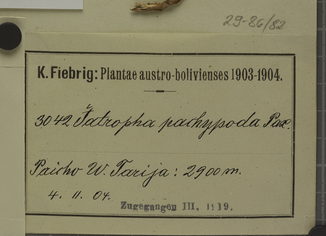 29-86/82
K. Fiebrig: Plantae austro-bolivienses 1903-1904.
3042 Jatropha pachypoda Pax.
Paicho W. Tarija: 2900 m.
4. II. 04.
Zugegangen III. 1919.